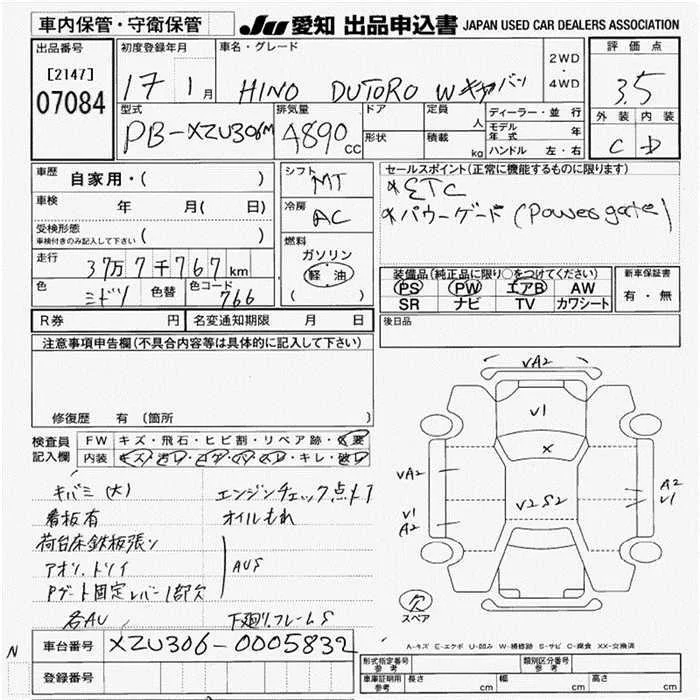 車内保管・守衛保管
JU 愛知 出品申込書 JAPAN USED CAR DEALERS ASSOCIATION
出品番号
[2147]
07084
初度登録年月
17 1月
車名・グレード
HINO DUTORO Wキャバン
2WD・4WD
評価点
3.5
型式
PB-XZU306M
排気量
4890cc
ドア
形状
定員 人
積載 kg
ディーラー・並行
モデル年式 年
ハンドル 左・右
外装 内装
C D
車歴 自家用・( )
車検 年 月( 日)
受検形態
車検付きのみ記入して下さい ( )
走行 37万7千767km
色 ミドリ 色替 色コード 766
シフト MT
冷房 AC
燃料
ガソリン
軽油
( )
セールスポイント(正常に機能するものに限ります)
*ETC
*パワーゲート (Power gate)
装備品(純正品に限り○をつけてください)
PS PW エアB AW
SR ナビ TV カワシート
新車保証書
有・無
R券 円 名変通知期限 月 日
後日品
注意事項申告欄(不具合内容等は具体的に記入して下さい)
修復歴 有 (箇所 )
検査員記入欄
FW キズ・飛石・ヒビ割・リペア跡・×要
内装 キズ・汚レ・コゲ・穴・・キレ・破レ
キバミ(大) エンジンチェック点灯
看板有 オイルもれ
荷台床鉄板張リ
アオリ、トリイ AUS
Pゲート固定レバー1部欠
各AU 下廻リフレームS
VA2
V1
X
VA2
V1
A2
V2S2
A2
V1
欠
スペア
A-キズ E-エクボ U-凹み W-補修跡 S-サビ C-腐食 XX-交換済
N
車台番号 XZU306-0005832
登録番号
形式指定番号 参考 類別区分番号 参考
車庫証明用 参考 長さ cm 幅 cm 高さ cm